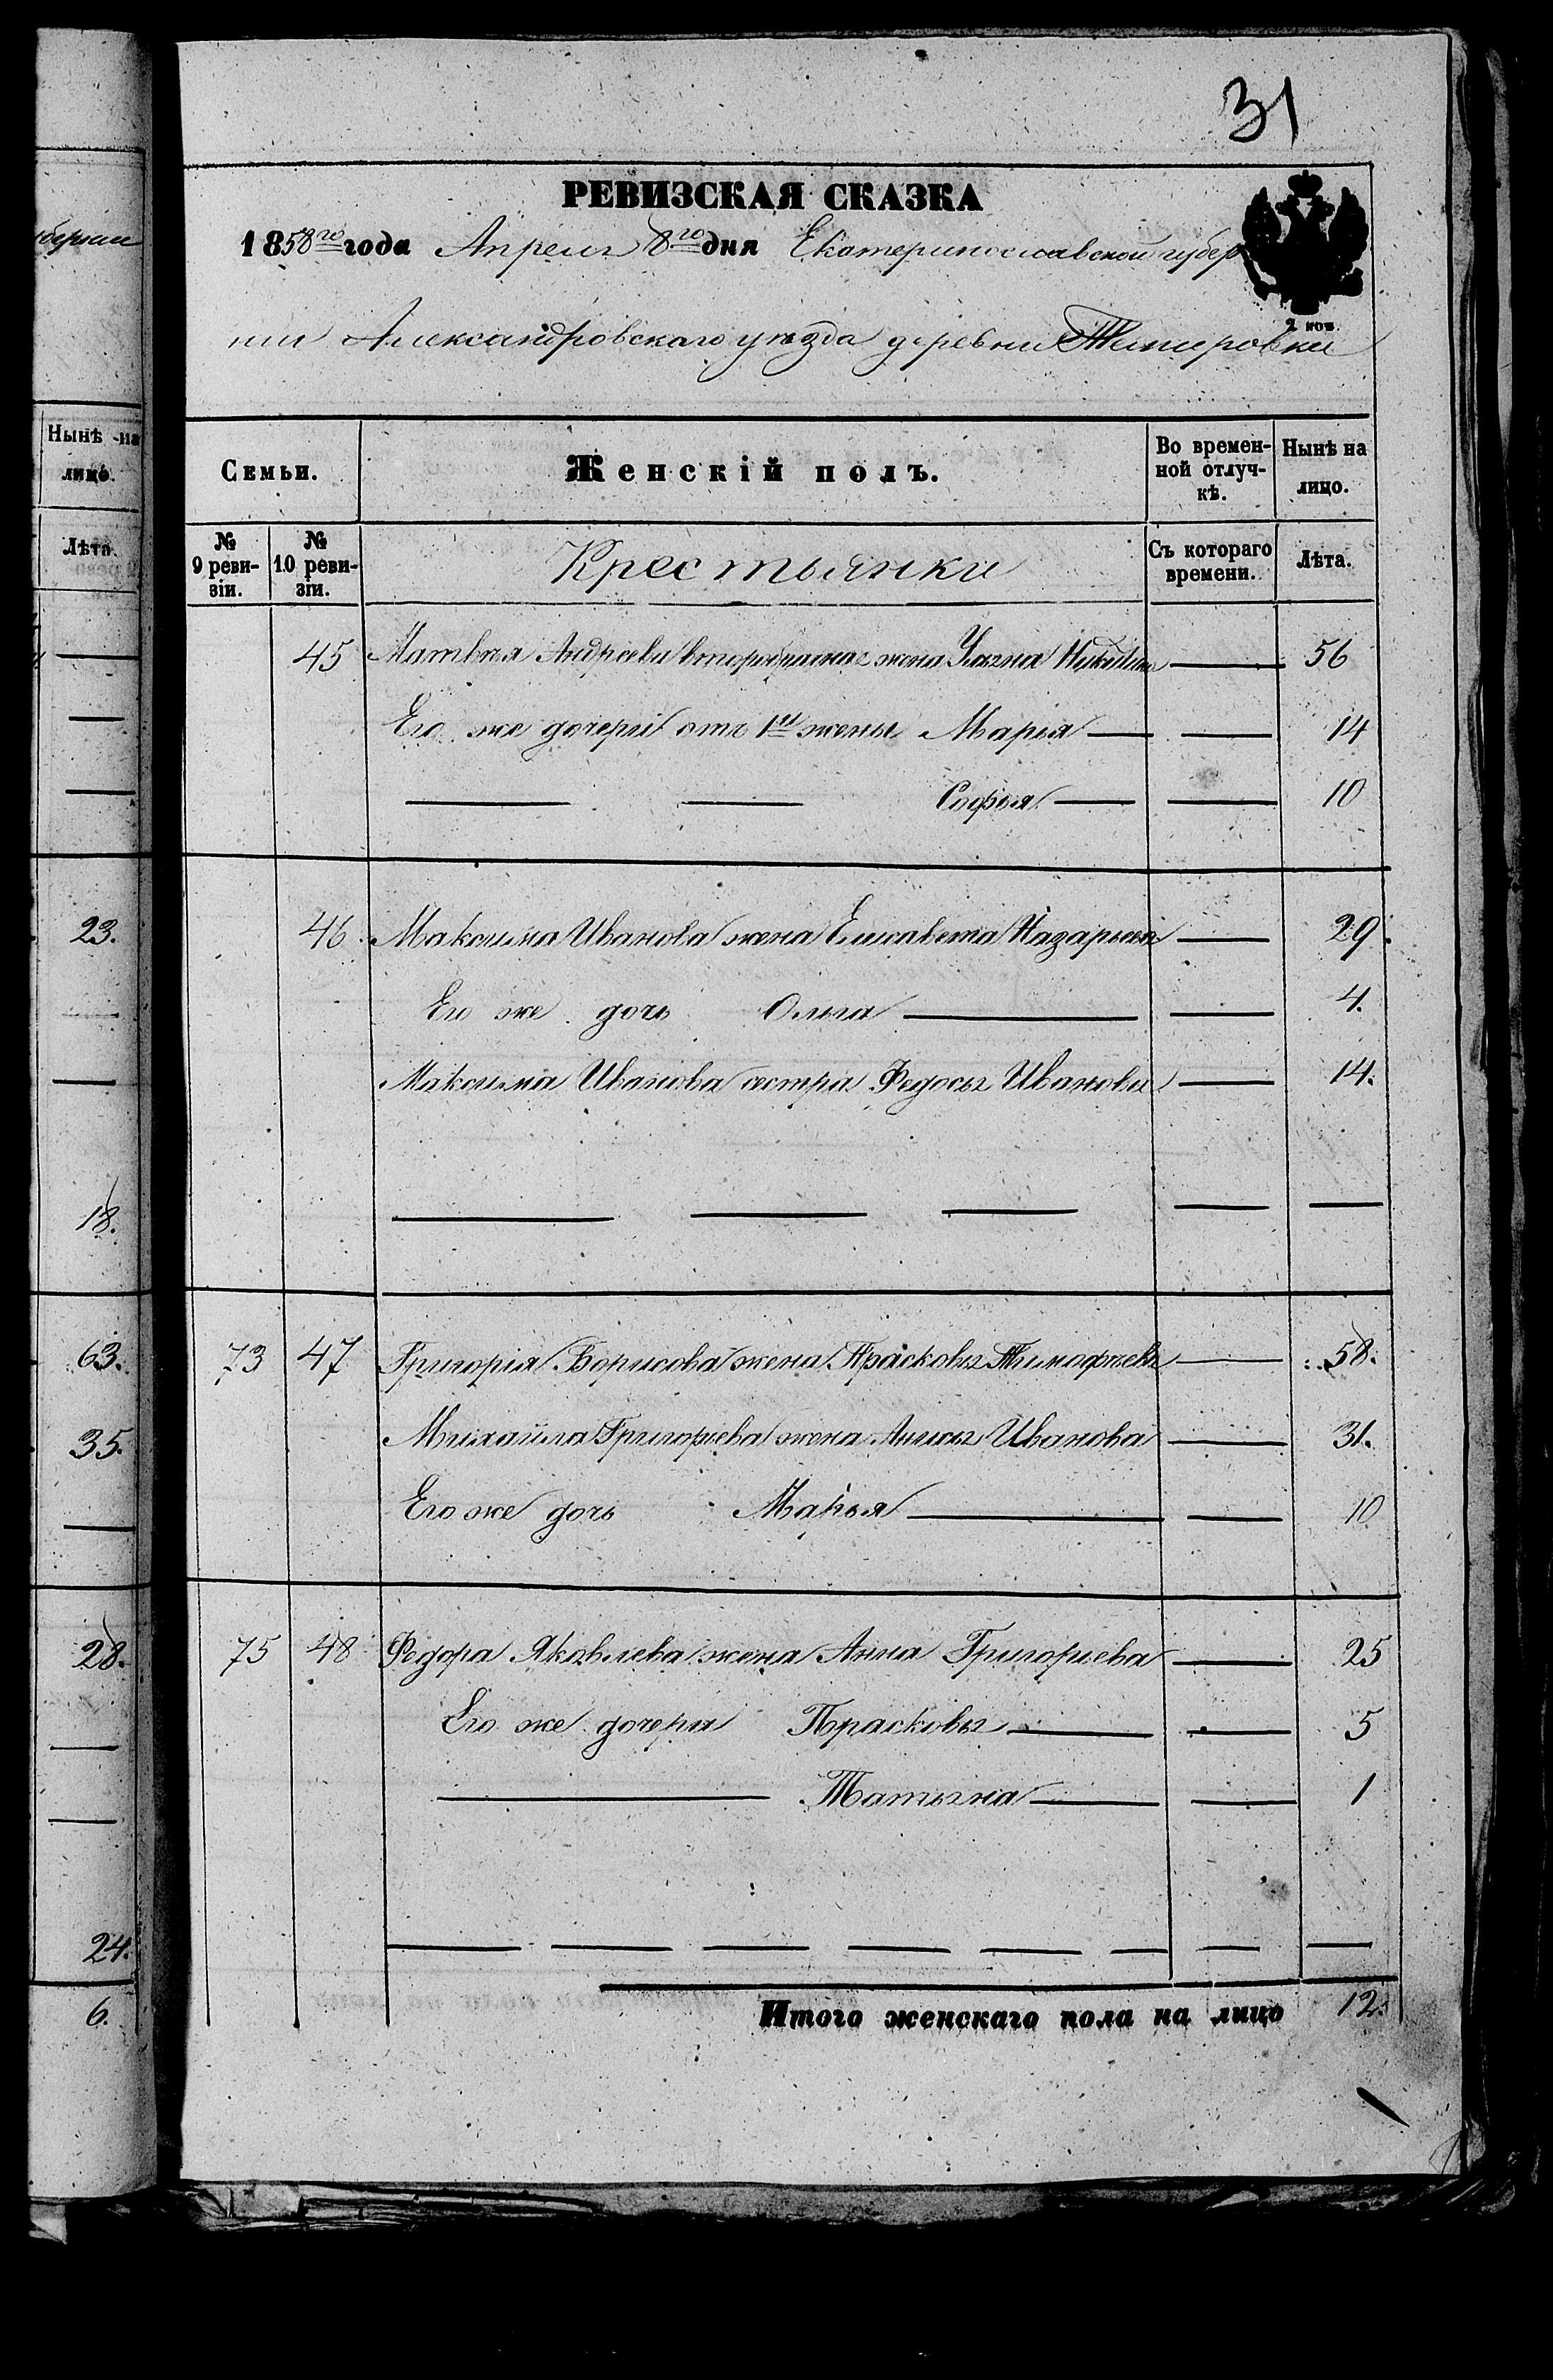 31
РЕВИЗСКАЯ СКАЗКА
1858го года Апреля 8го дня Екатеринославской губер
нии Александровскаго уѣзда деревни Темировки
2 коп.
Семьи. Женскій полъ. Во времен-ной отлуч-кѣ. Нынѣ на лицо.
№ 9 реви-зіи. № 10 реви-зіи. Крестьянки Съ котораго времени. Лѣта.
45 Матвѣя Андреева второбрачная жена Ульяна Никитина 56
Его же дочери отъ 1й жены Марья 14
Софья 10
46 Максима Иванова жена Елисавета Назарьева 29.
Его же дочь Ольга 4.
Максима Иванова сестра Федосья Иванова 14.
73 47 Григорія Борисова жена Прасковья Тимофѣева 58.
Михайла Григорьева жена Иванова 31.
Его же дочь Марья 10
75 48 Федора Яковлева жена Анна Григорьева 25
Его же дочери Прасковья 5
Татьяна 1
Итого женскаго пола на лицо 12.
бернии
Нынѣ на
лицо.
Лѣта.
23.
18.
63.
35.
28.
24.
6.